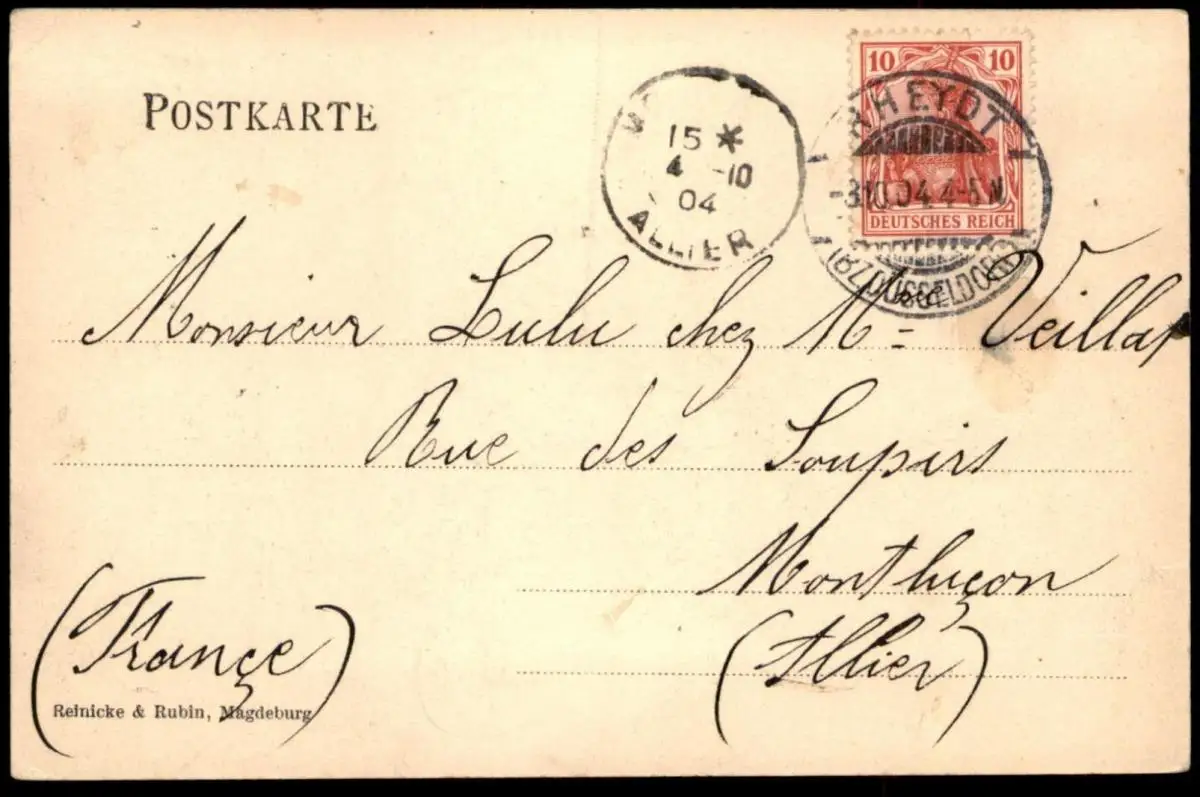 POSTKARTE
15 *
4 -10
04
ALLIER
10 10
RHEYDT
-3.10.04.4-5 N
DEUTSCHES REICH
(BZ DÜSSELDORF)
Monsieur Lulu chez Mme Veillat
Rue des Soupirs
Montluçon
(Allier)
(Françe)
Reinicke & Rubin, Magdeburg